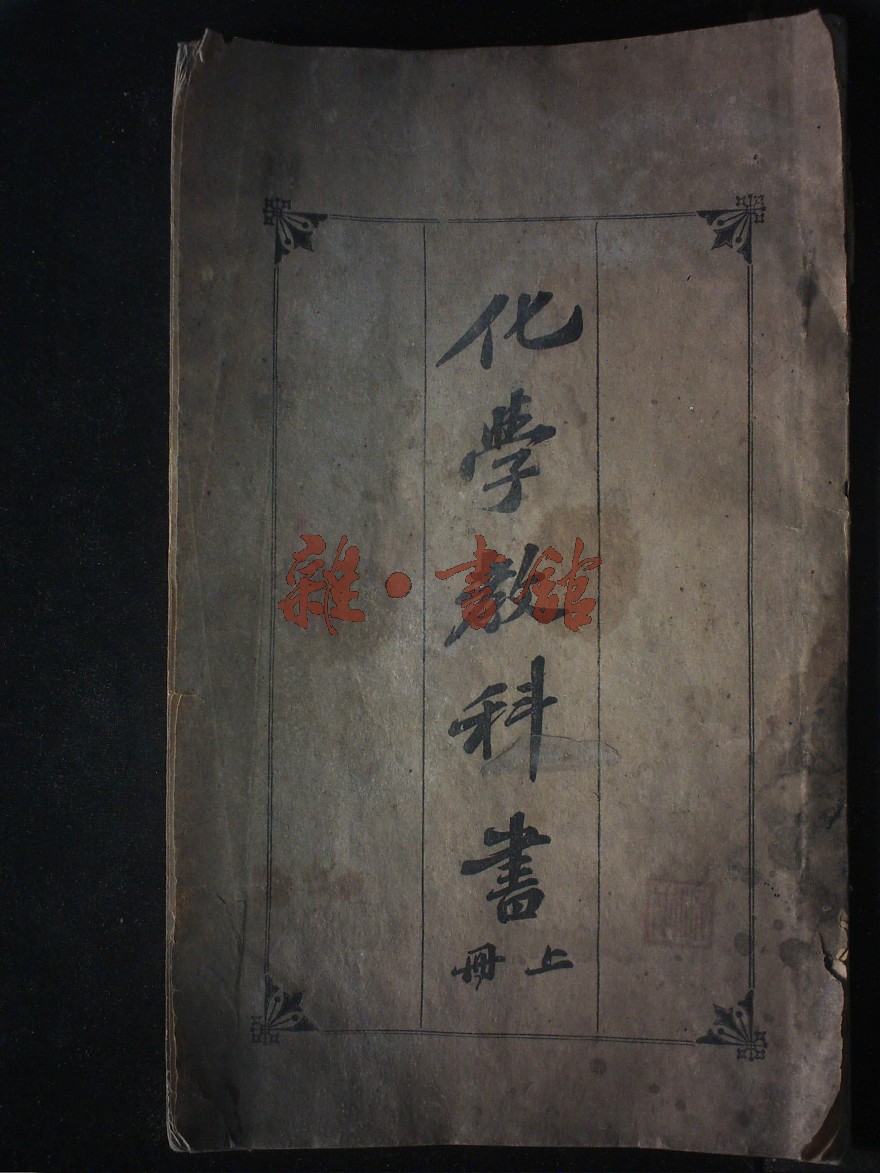 化學教科書
上冊
雜·書館